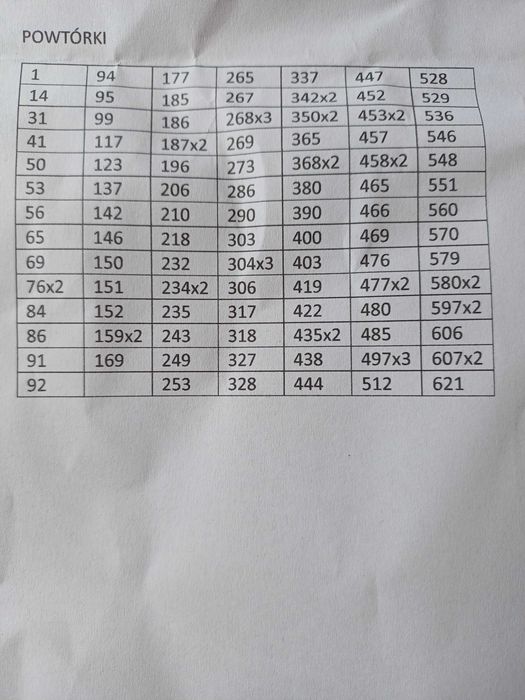 POWTÓRKI
1 94 177 265 337 447 528
14 95 185 267 342x2 452 529
31 99 186 268x3 350x2 453x2 536
41 117 187x2 269 365 457 546
50 123 196 273 368x2 458x2 548
53 137 206 286 380 465 551
56 142 210 290 390 466 560
65 146 218 303 400 469 570
69 150 232 304x3 403 476 579
76x2 151 234x2 306 419 477x2 580x2
84 152 235 317 422 480 597x2
86 159x2 243 318 435x2 485 606
91 169 249 327 438 497x3 607x2
92 253 328 444 512 621